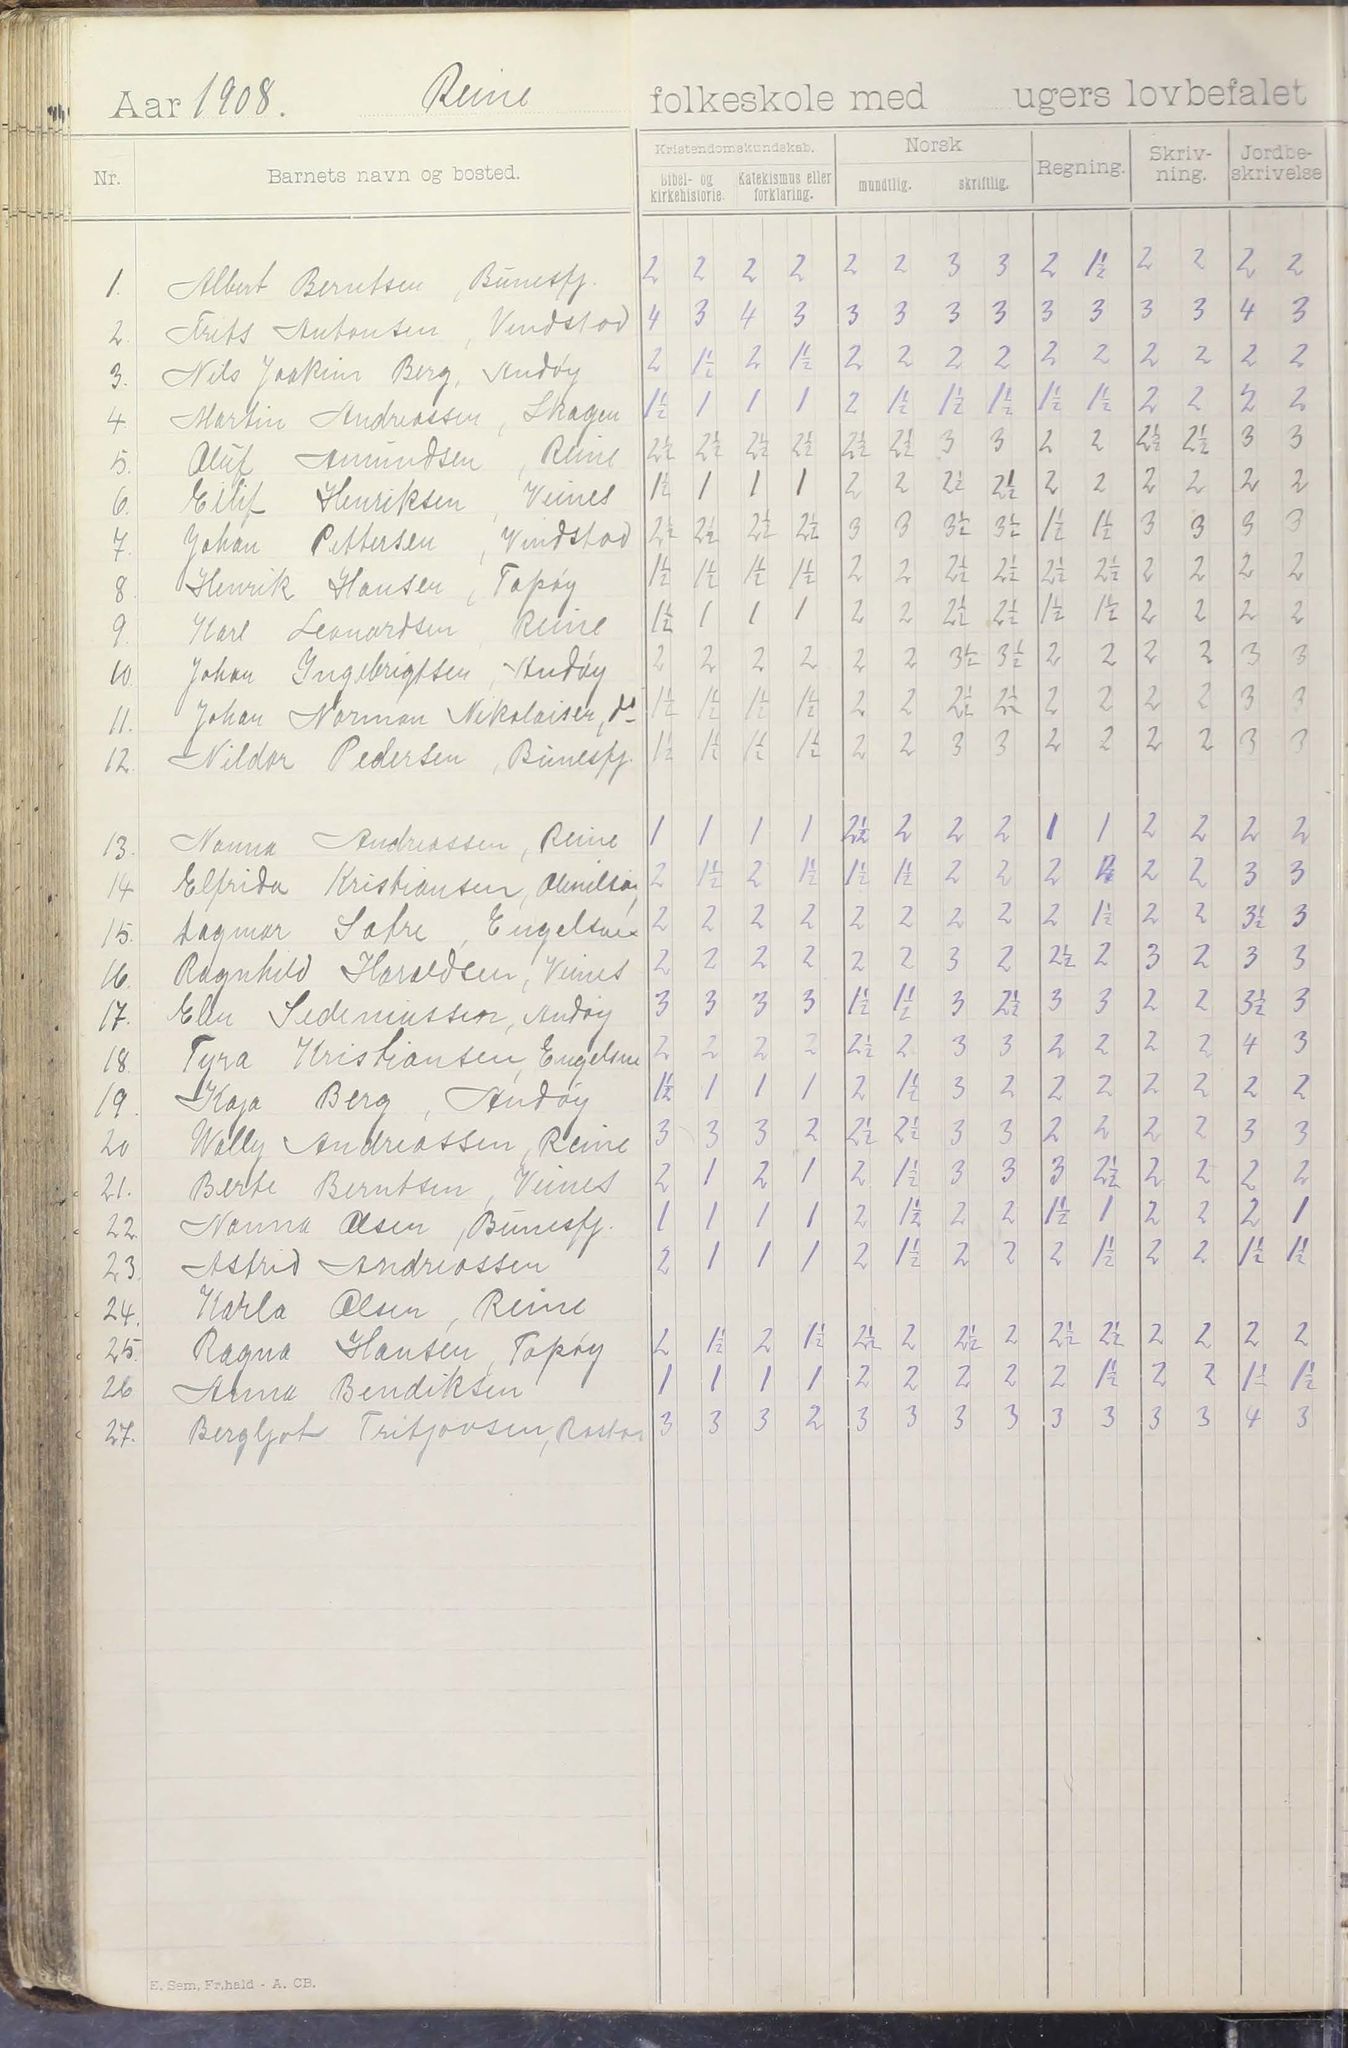 Aar 1908. Reine folkeskole med ugers lovbefalet
Nr. Barnets navn og bosted. Kristendomskundskab. Norsk Regning. Skriv-ning. Jordbe-skrivelse
Bibel- og kirkehistorie. Katekismus eller forklaring. mundtlig. skriftlig.
1. Albert Berntsen, Bunesfj. 2 2 2 2 2 2 3 3 2 1½ 2 2 2 2
2. Frits Antonsen, Vindstad 4 3 4 3 3 3 3 3 3 3 3 3 4 3
3. Nils Joakim Berg, Andøy 2 1½ 2 1½ 2 2 2 2 2 2 2 2 2 2
4. Martin Andreassen, Skagen 1½ 1 1 1 2 1½ 1½ 1½ 1½ 1½ 2 2 2 2
5. Oluf Amundsen, Reine 2½ 2½ 2½ 2½ 2½ 2½ 3 3 2 2 2½ 2½ 3 3
6. Eilif Henriksen, Veines 1½ 1 1 1 2 2 2½ 2½ 2 2 2 2 2 2
7. Johan Pettersen, Vindstad 2½ 2½ 2½ 2½ 3 3 3½ 3½ 1½ 1½ 3 3 3 3
8. Henrik Hansen, Topøy 1½ 1½ 1½ 1½ 2 2 2½ 2½ 2½ 2½ 2 2 2 2
9. Karl Leonardsen, Reine 1½ 1 1 1 2 2 2½ 2½ 1½ 1½ 2 2 2 2
10. Johan Ingebrigtsen, Andøy 2 2 2 2 2 2 3½ 3½ 2 2 2 2 3 3
11. Johan Norman Nikolaisen, do 1½ 1½ 1½ 1½ 2 2 2½ 2½ 2 2 2 2 3 3
12. Nildor Pedersen, Bunesfj. 1½ 1½ 1½ 1½ 2 2 3 3 2 2 2 2 3 3
13. Nanna Andreassen, Reine 1 1 1 1 2½ 2 2 2 1 1 2 2 2 2
14 Elfrida Kristiansen, 2 1½ 2 1½ 1½ 1½ 2 2 2 2 2 3 3
15. Dagmar Satre, Engelsnes 2 2 2 2 2 2 2 2 2 1½ 2 2 3½ 3
16. Ragnhild Haraldsen, Veines 2 2 2 2 2 2 3 2 2½ 2 3 2 3 3
17. Elen Sedeniussen, Andøy 3 3 3 3 1½ 1½ 3 2½ 3 3 2 2 3½ 3
18. Tyra Kristiansen, Engelsne 2 2 2 2 2½ 2 3 3 2 2 2 2 4 3
19. Kaja Berg, Andøy 1½ 1 1 1 2 1½ 3 2 2 2 2 2 2 2
20 Wally Andreassen, Reine 3 3 3 2 2½ 2½ 3 3 2 2 2 2 3 3
21. Berte Berntsen, Veines 2 1 2 1 2 1½ 3 3 3 2½ 2 2 2 2
22. Nanna Olsen, Bunesfj. 1 1 1 1 2 1½ 2 2 1½ 1 2 2 2 1
23. Astrid Andreassen 2 1 1 1 2 1½ 2 2 2 1½ 2 2 1½ 1½
24. Karla Olsen, Reine
25. Ragna Hansen, Topøy 2 1½ 2 1½ 2½ 2 2½ 2 2½ 2½ 2 2 2 2
26 Anna Bendiksen 1 1 1 1 2 2 2 2 2 1½ 2 2 1½ 1½
27. Bergljot Tritjovsen, 3 3 3 2 3 3 3 3 3 3 3 3 4 3
E. Sem, Fr.hald - A. CB.